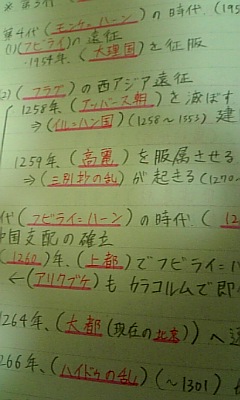 ※ 第3代
第4代(モンケ=ハーン)の時代.(195
(1)(フビライ)の遠征
・1954年、(大理国)を征服
(2)(フラグ)の西アジア遠征
1258年、(アッバース朝)を滅ぼす
⇒(イル=ハン国)(1258〜1353)建
1259年、(高麗)を服属させる
⇒(三別抄の乱)が起きる(1270〜
代(フビライ=ハーン)の時代.(12
中国支配の確立
(1260)年、(上都)でフビライ=ハ
←(アリクブケ)も カラコルムで即
1264年、(大都(現在の北京))へ
1266年、(ハイドゥの乱)(〜1301)